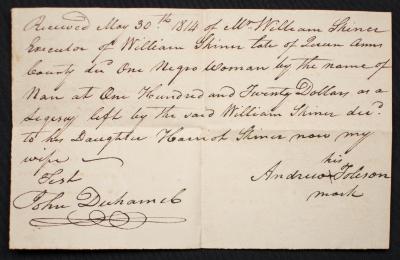 Received May 30th 1814 of Mr William Skiner
Executor of William Skiner late of Queen Anns
County decd One Negro Woman by the name of
Nan at One Hundred and Twenty Dollars as a
Legesay left by the said William Skiner decd
to his Daughter Harriot Skiner now my
wife
his
Test
Andrew X Toleson
John Duhamel
mark